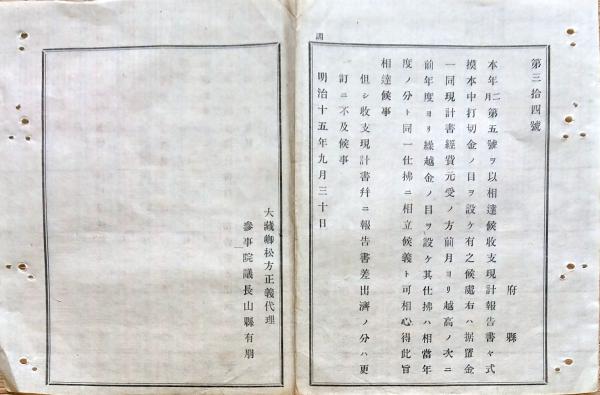 第三拾四號
府縣
本年二月第五號ヲ以相達候收支現計報告書々式
摸本中打切金ノ目ヲ設ケ有之候處右ハ据置金
一同現計書經費元受ノ方前月ヨリ越高ノ次ニ
前年度ヨリ繰越金ノ目ヲ設ケ其仕拂ハ相當年
度ノ分ト同一仕拂ニ相立候義ト可相心得此旨
相達候事
但シ收支現計書幷ニ報告書差出濟ノ分ハ更
訂ニ不及候事
明治十五年九月三十日
大藏卿松方正義代理
參事院議長山縣有朋